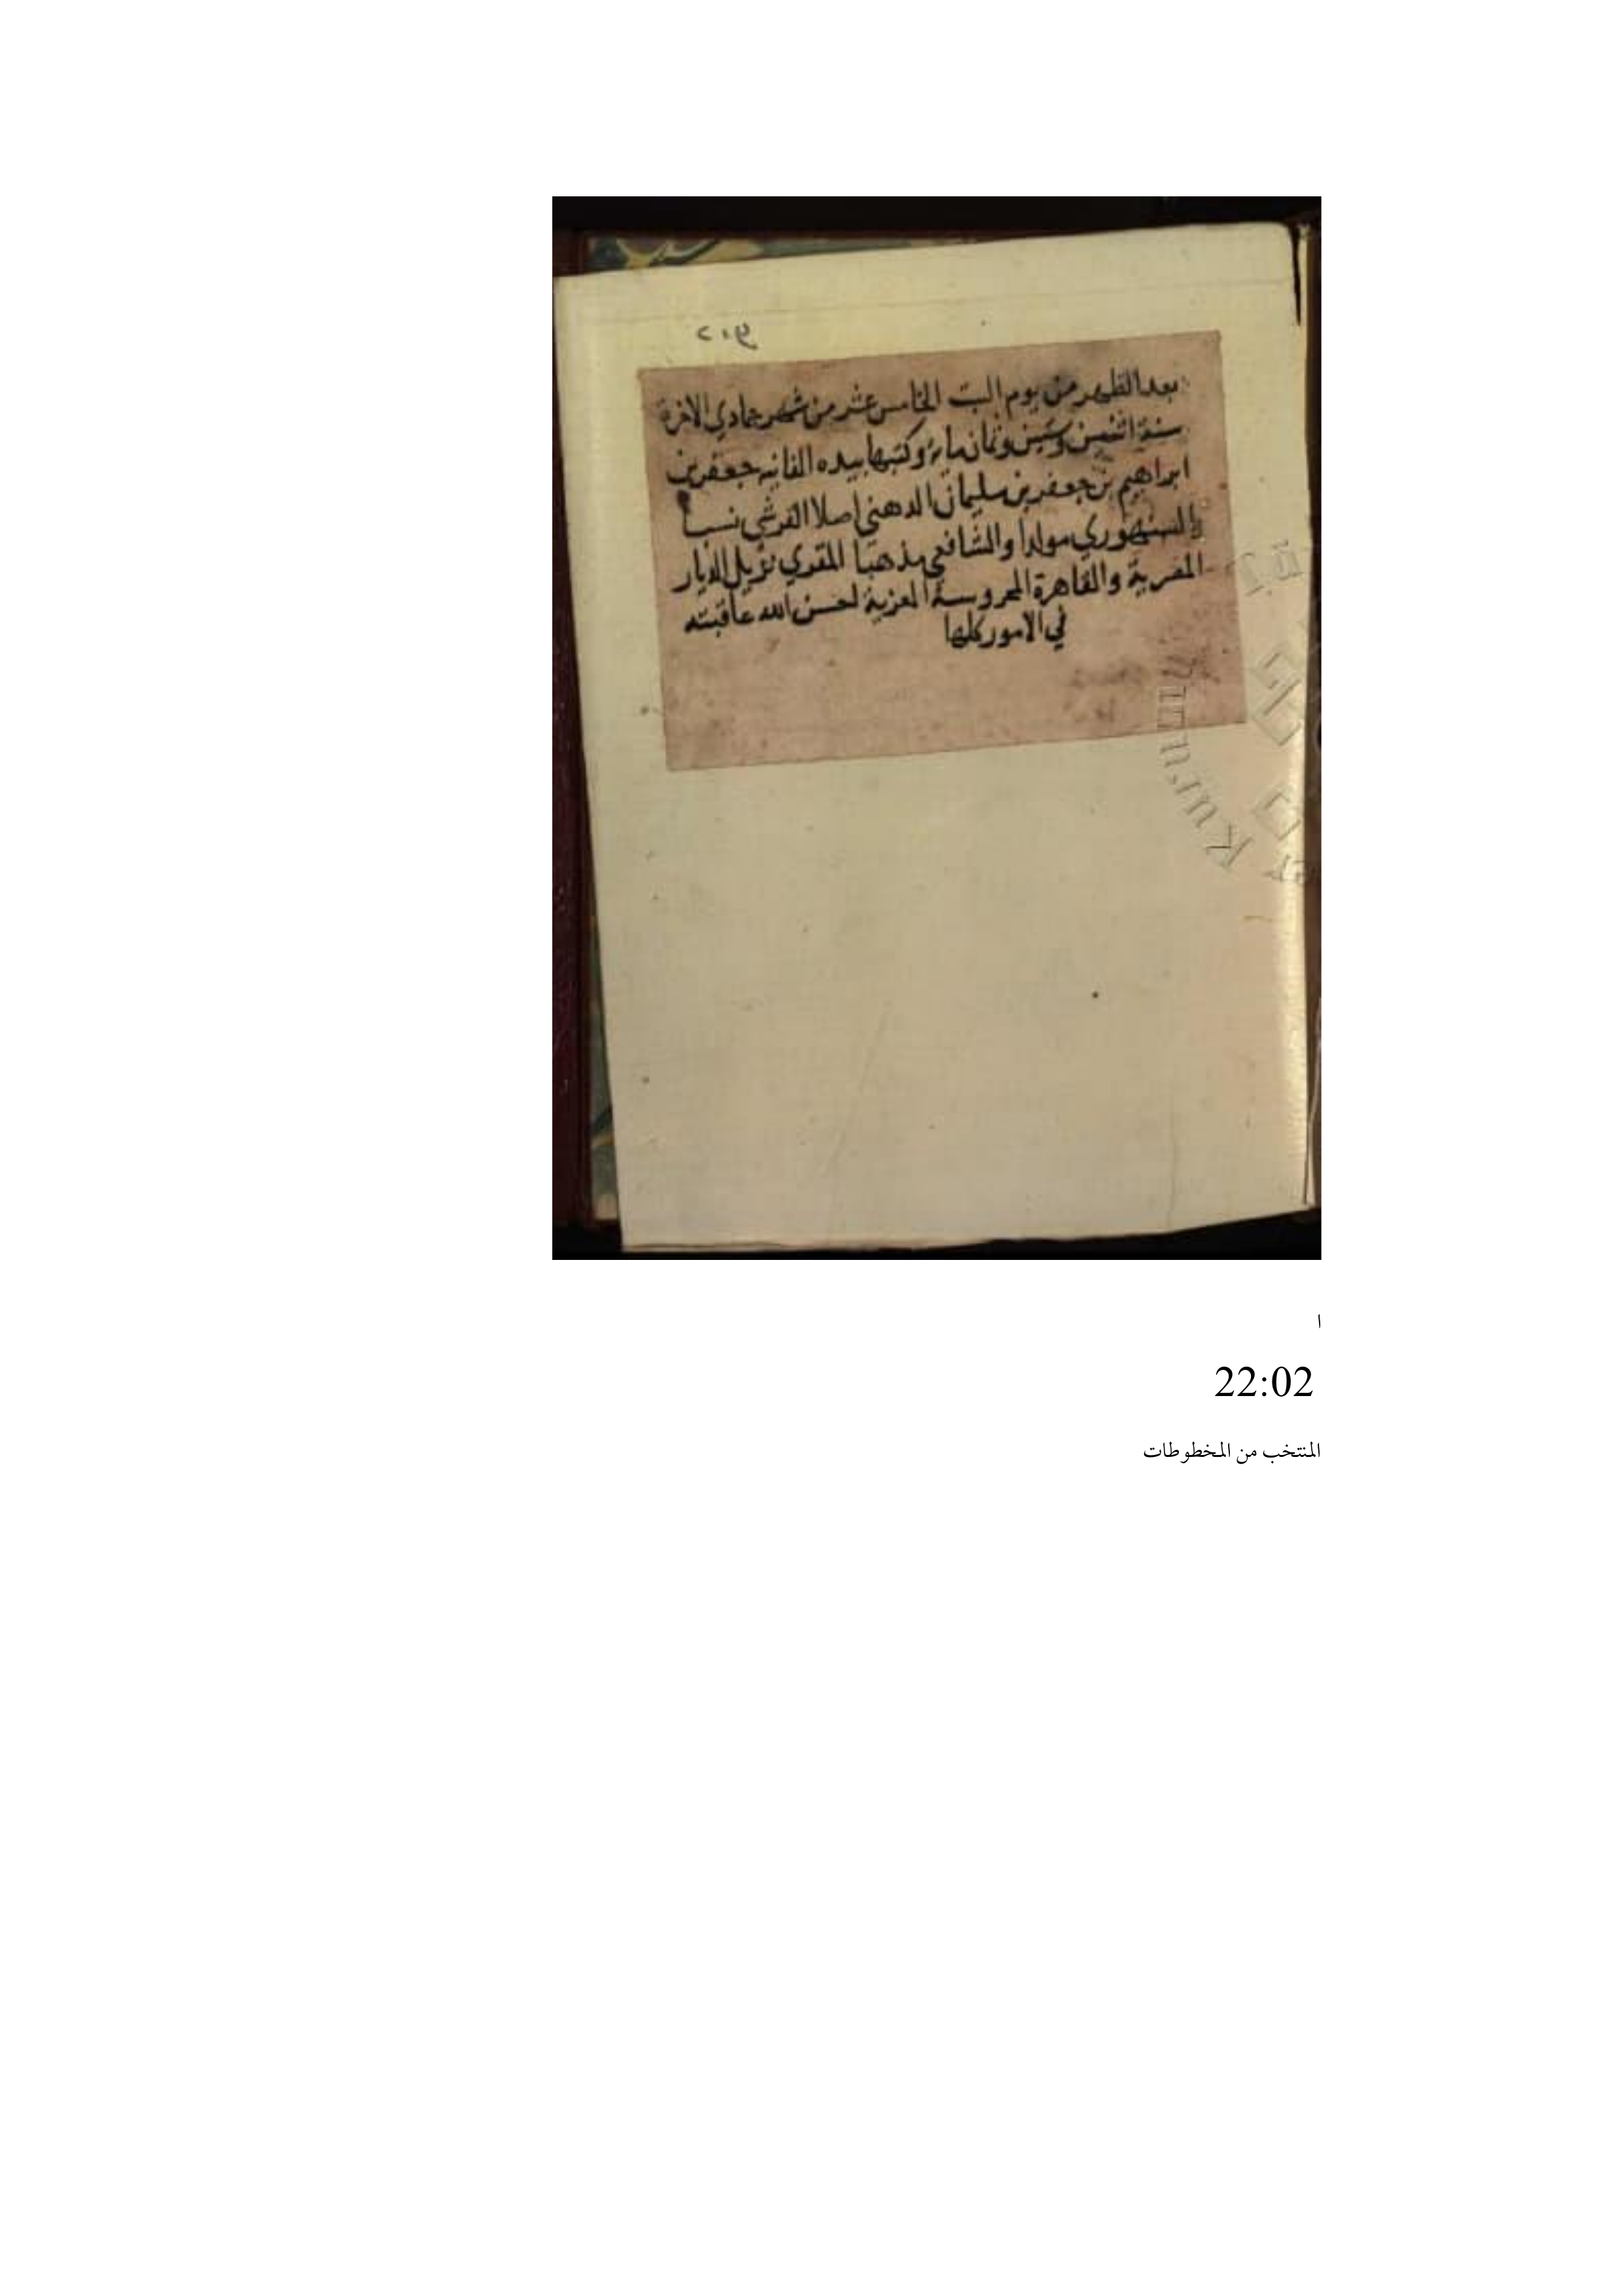 بعد الظهر من يوم السبت الخامس عشر من شهر جمادي الاخرة
سنة اثنين وستين وثمان مائة وكتبها بيده الفانيه جعفر بن
ابراهيم بن جعفر بن سليمان الدهني اصلا القرشي نسبا
السنهوري مولدا والشافعي مذهبا المقري نزيل الديار
المصرية والقاهرة المحروسة المعزية احسن الله عاقبته
في الامور كلها
Kuru
ا
22:02
المنتخب من المخطوطات